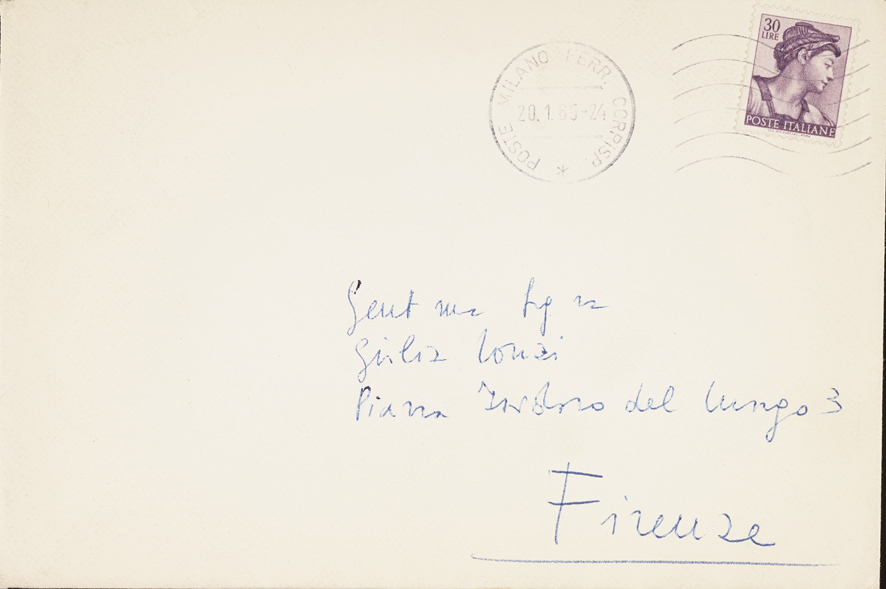 30
LIRE
POSTE ITALIANE
POSTE MILANO FERR. CORRISP.
20.1.65-24
Gent ma Sig ra
Giulia Lonzi
Piazza Isidoro del Lungo 3
Firenze